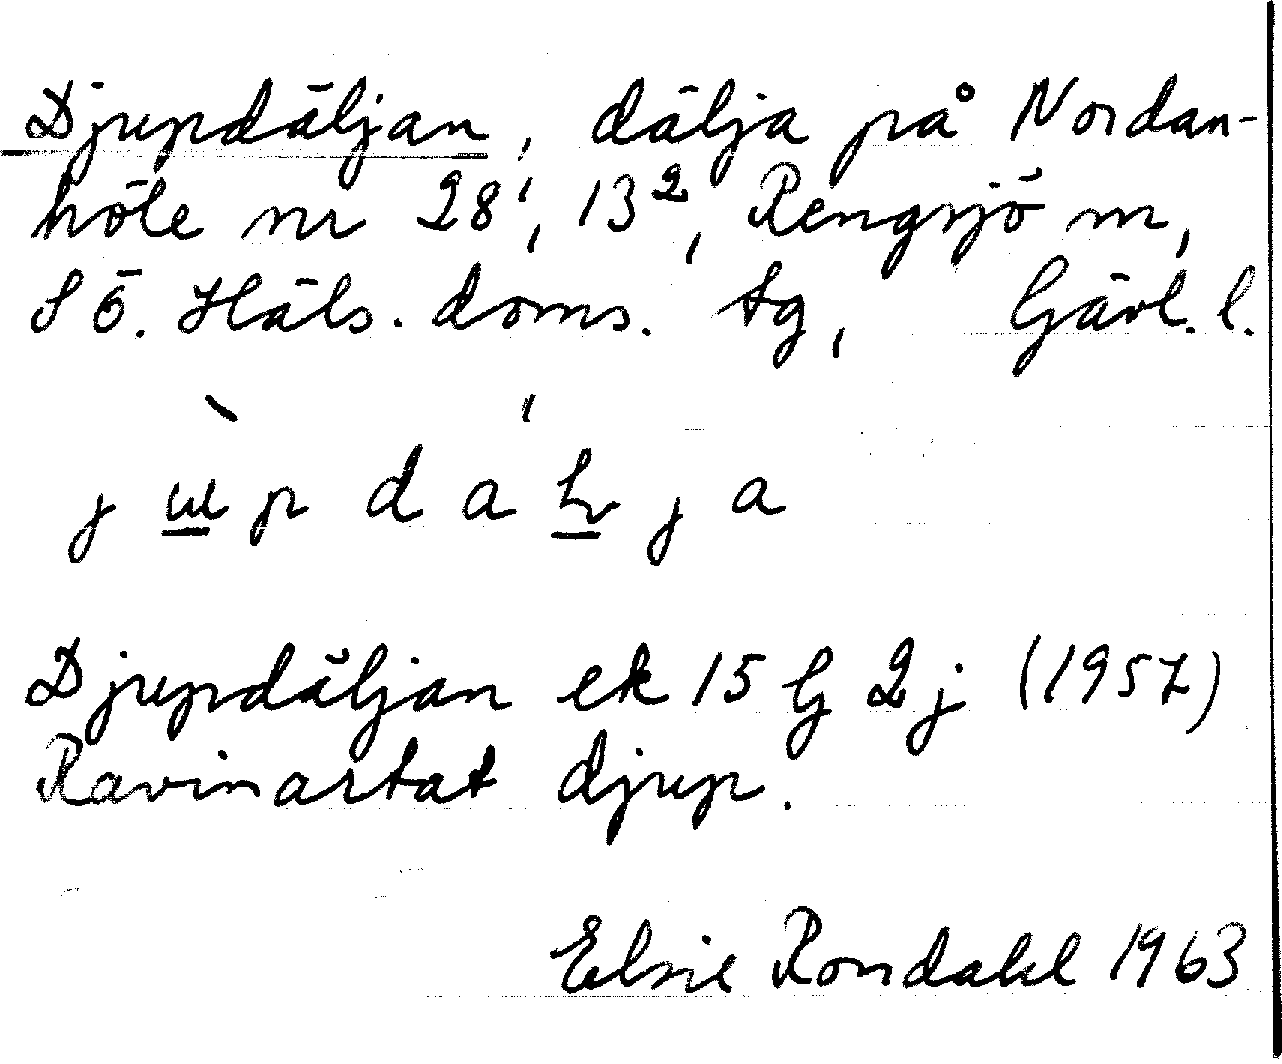 Djupdäljan, dälja på Nordan-
höle nr 28¹, 13², Rengsjö sn,
SÖ. Häls. doms. tg, Gävl. l.
Djupdäljan ek 15 G 2 j (1957)
Ravinartat djup.
Elsie Rondahl 1963